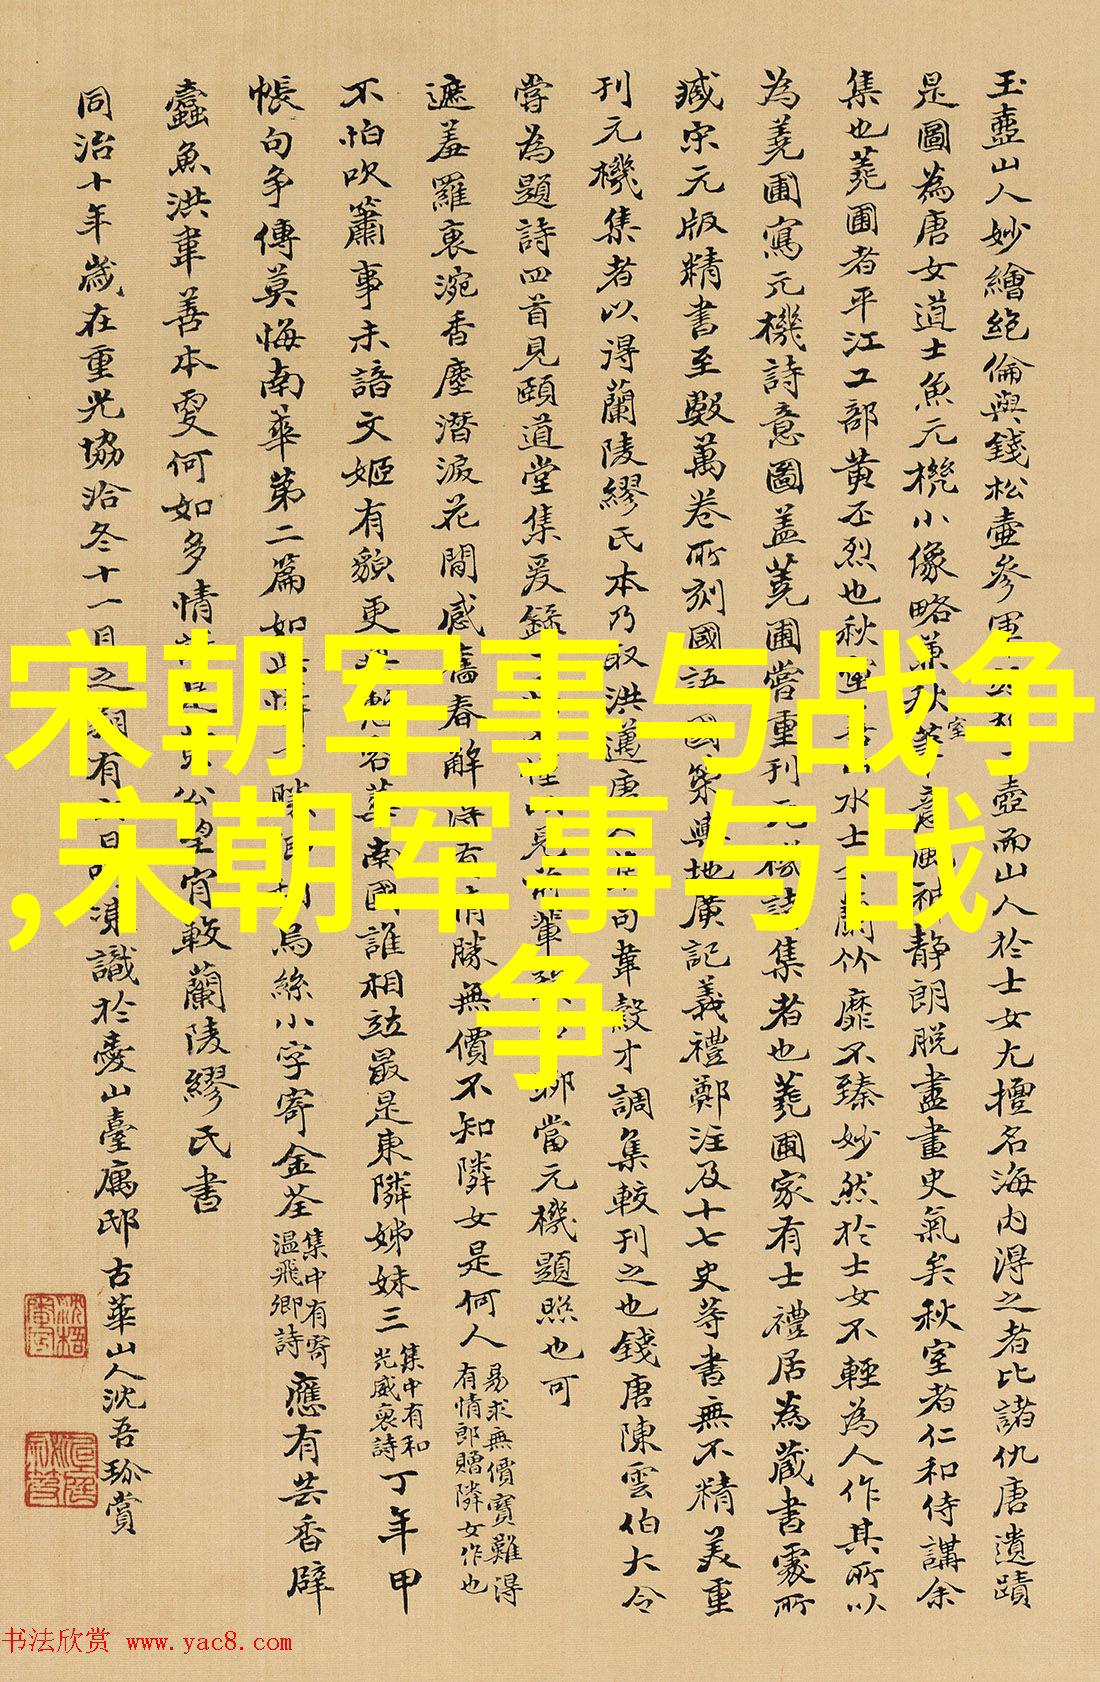 玉壺山人妙繪絕倫與錢松壺參軍壺而山人於士女尤擅名海内得之者比諸仇唐遺蹟
是圖為唐女道士魚元機小像略兼秋室意風神靜朗脱盡畫史氣矣秋室者仁和侍講余
集也蕘圃者平江工部黄丕烈也秋室山水士女蘭竹靡不臻妙然於士女不輕為人作其所以
為蕘圃寫元機詩意圖盖蕘圃嘗重刊元機詩集者也蕘圃家有士禮居為藏書處所
臧宋元版精書至數萬卷所刻國語國策輿地廣記義禮鄭注及十七史等書無不精美重
刊元機集者以得蘭陵繆氏本乃取洪邁唐人句韋縠才調集較刊之也錢唐陳雲伯大令
嘗為題詩四首見頤道堂集爰錄見前輩當元機題照也可
遮羞羅褎涴香塵潛淚花間感舊春解得有情勝無價不知隣女是何人易求無價寶難得有情郎贈隣女作也
不怕吹簫事未諳文姬有貌更華南國誰相竝最是東隣姊妹三集中有和光威裒詩丁年甲
帳句争傳莫悔南華第二篇如烏絲小字寄金荃集中有寄温飛卿詩應有芸香辟
蠹魚洪韋善本更何如多情公望宵較蘭陵繆氏書
同治十年歲在重光協洽冬十一月之有識於臺寓邸古華山人沈吾珎賞
宋朝军事与战争
,宋朝军事与战
争
书法欣赏 www.yac8.com